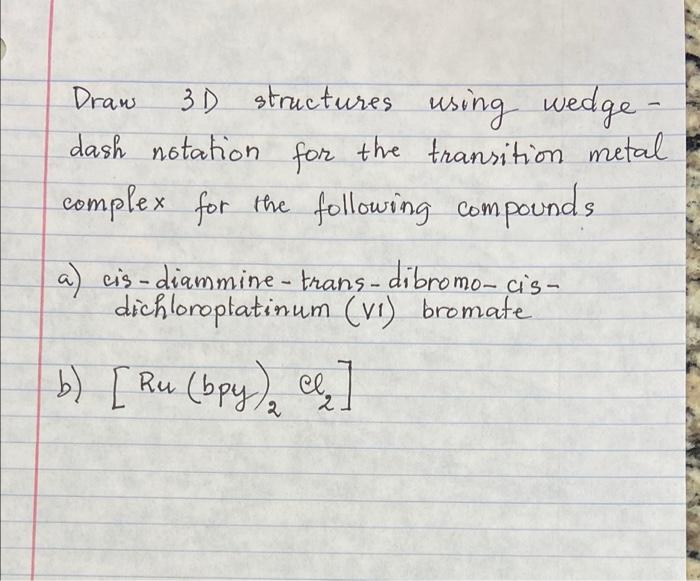 Draw 3D structures using wedge-
dash notation for the transition metal
complex for the following compounds
a) cis-diammine-trans-dibromo-cis-
dichloroplatinum (VI) bromate
b) [Ru(bpy)₂ Cl₂]